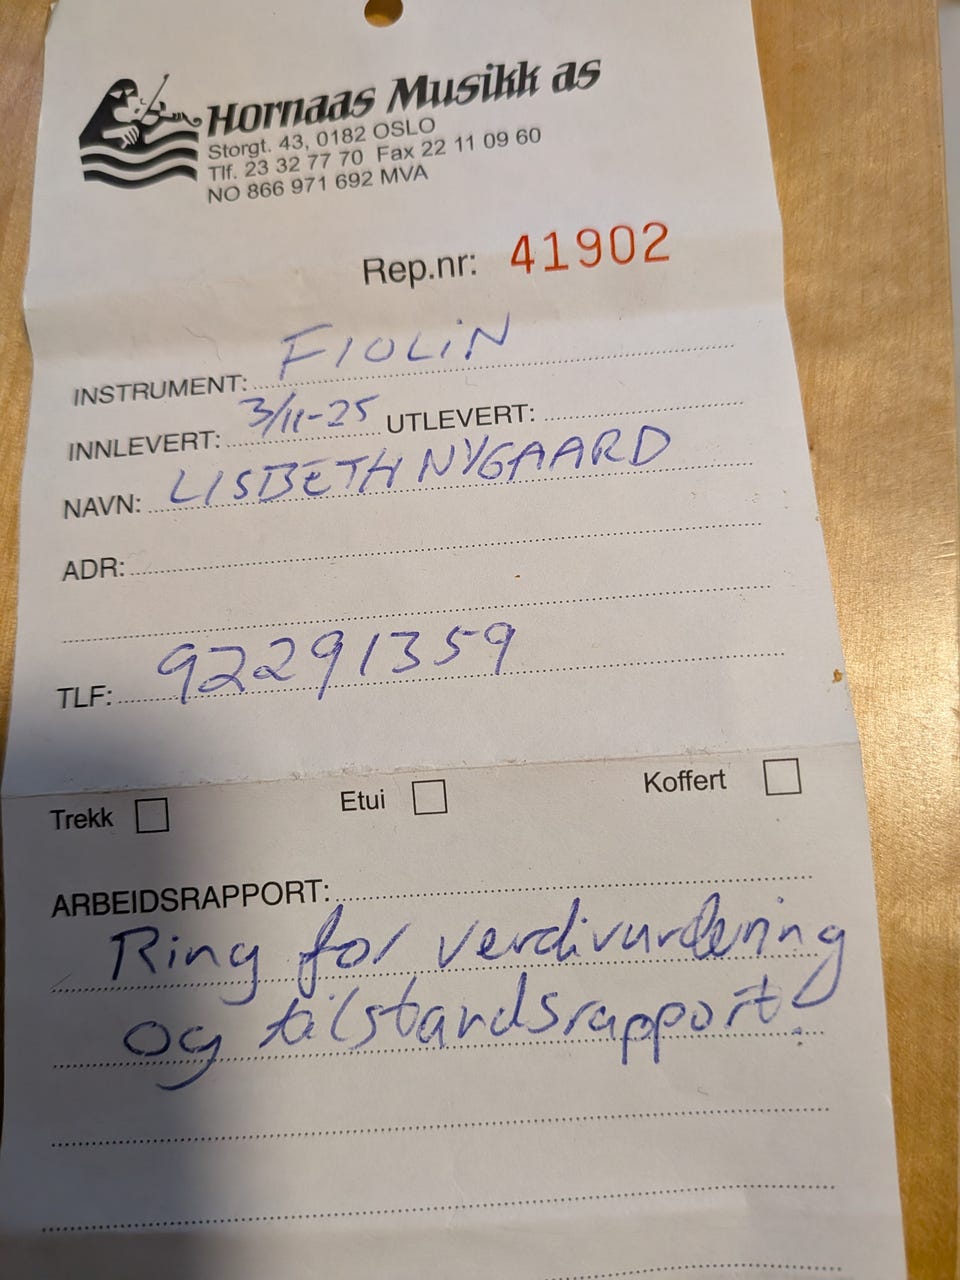 Hornaas Musikk as
Storgt. 43, 0182 OSLO
Tlf. 23 32 77 70 Fax 22 11 09 60
NO 866 971 692 MVA
Rep.nr: 41902
INSTRUMENT: FIOLIN
INNLEVERT: 3/11-25 UTLEVERT:
NAVN: LISBETH NYGAARD
ADR:
TLF: 92291359
Trekk Etui Koffert
ARBEIDSRAPPORT:
Ring for verdivurdering
og tilstandsrapport!